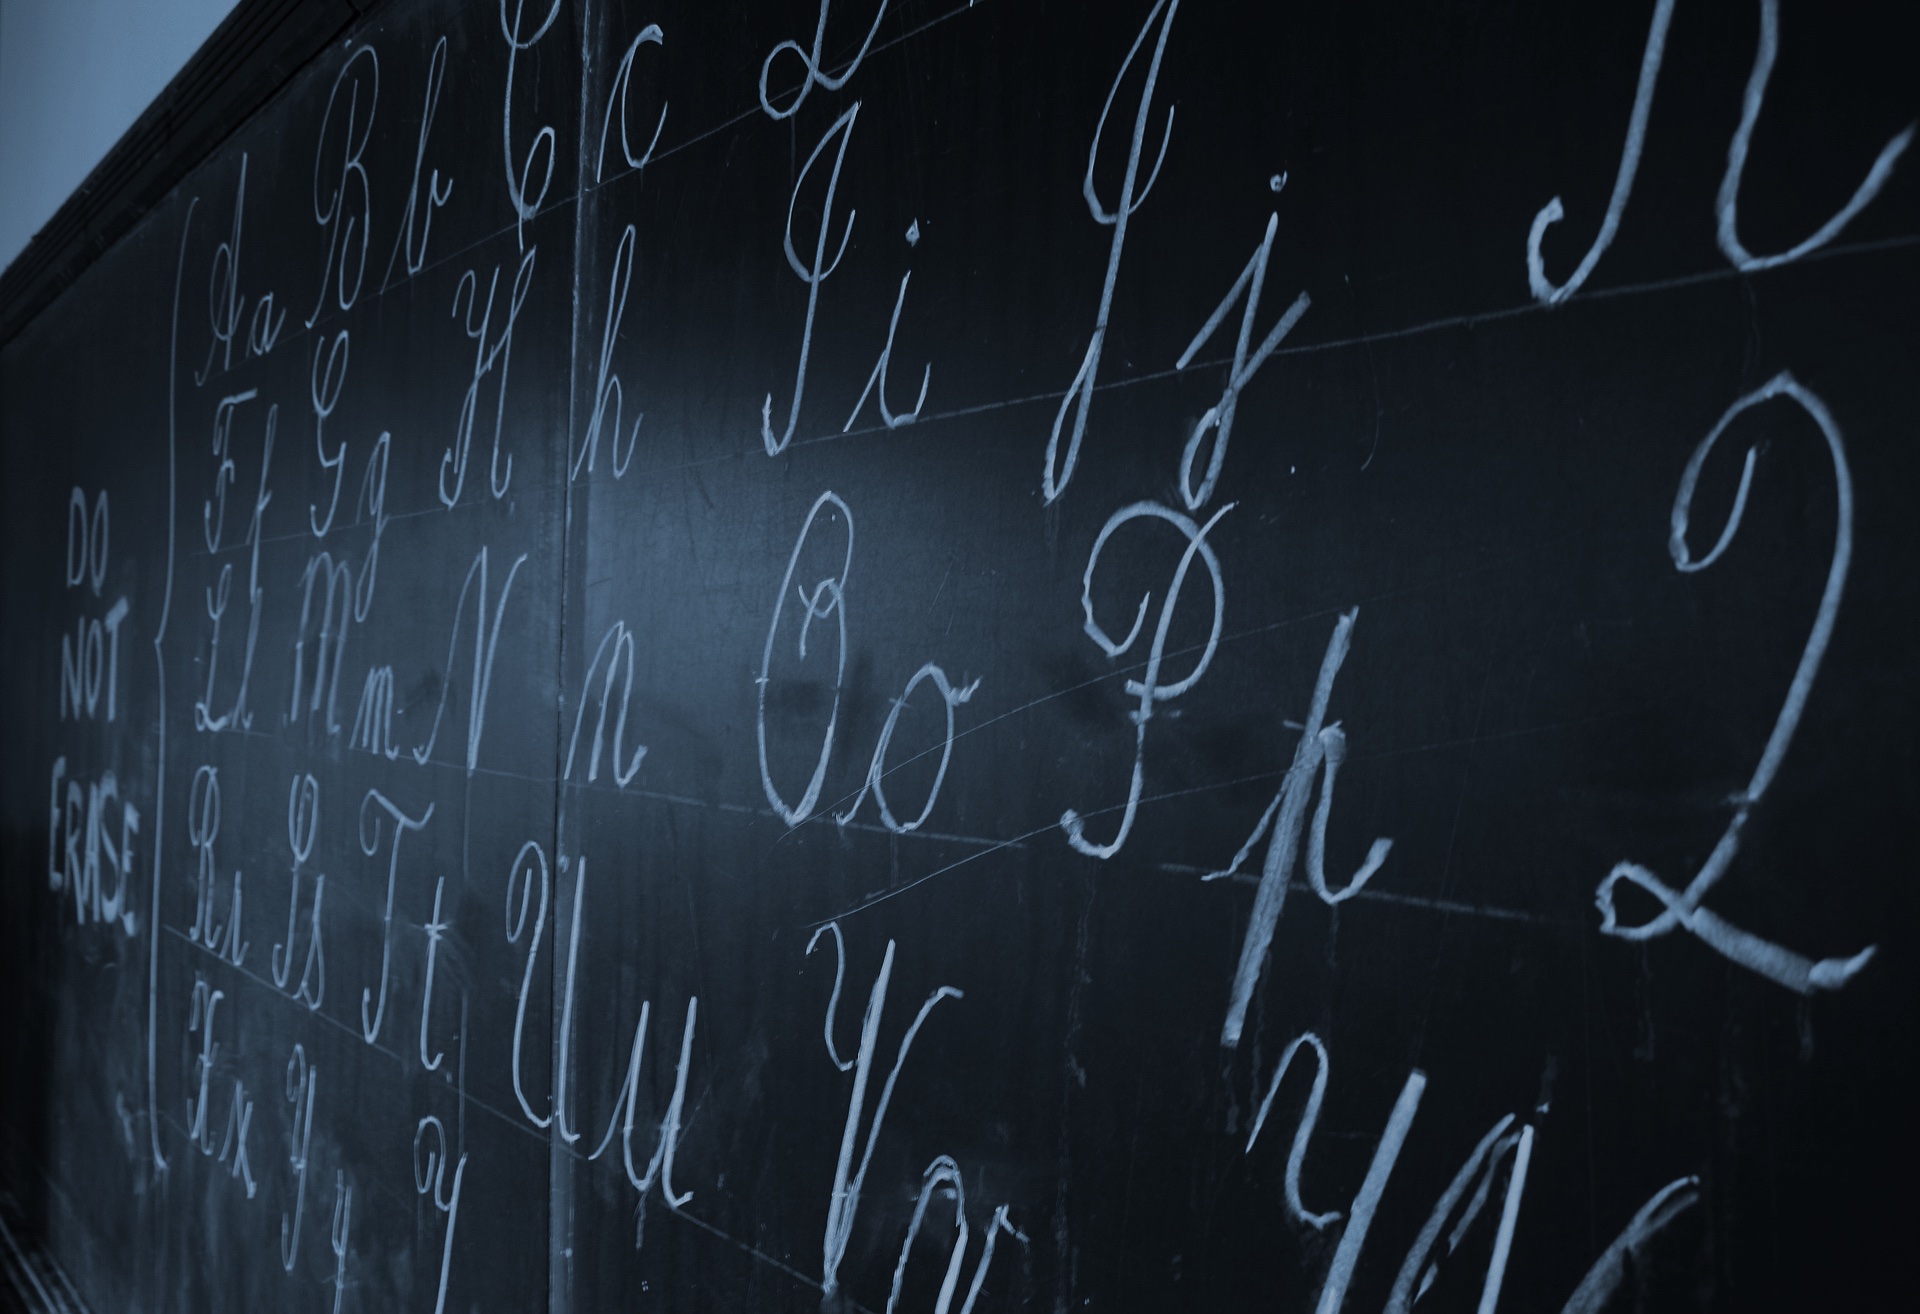 DO
NOT
ERASE
A a B b C c D
F f G g H h I i J j K
L l M m N n O o P p Q
R r S s T t U u V v W
X x Y y